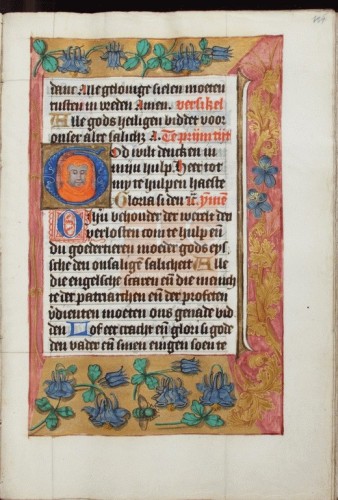 daer Alle gelouige sielen moeten
rusten in vreden Amen. versikel
Alle gods heiligen biddet voer
onser alre salich3 A. Te prijm tijt
God wilt dencken in
mijn hulp Heer tot
my te hulpen haeste
Gloria si den ymne
Sijn behouder der werelt den
verlosten com te hulp eñ
du goedertieren moeder gods eys
sche den onsalige salicheit Alle
die engelsche scaren eñ die menich
te der patriarchen eñ der profeten
verdienten moeten ons genade vid
den Lof eer cracht eñ glori si gode
den vader eñ sinen enigen soen te